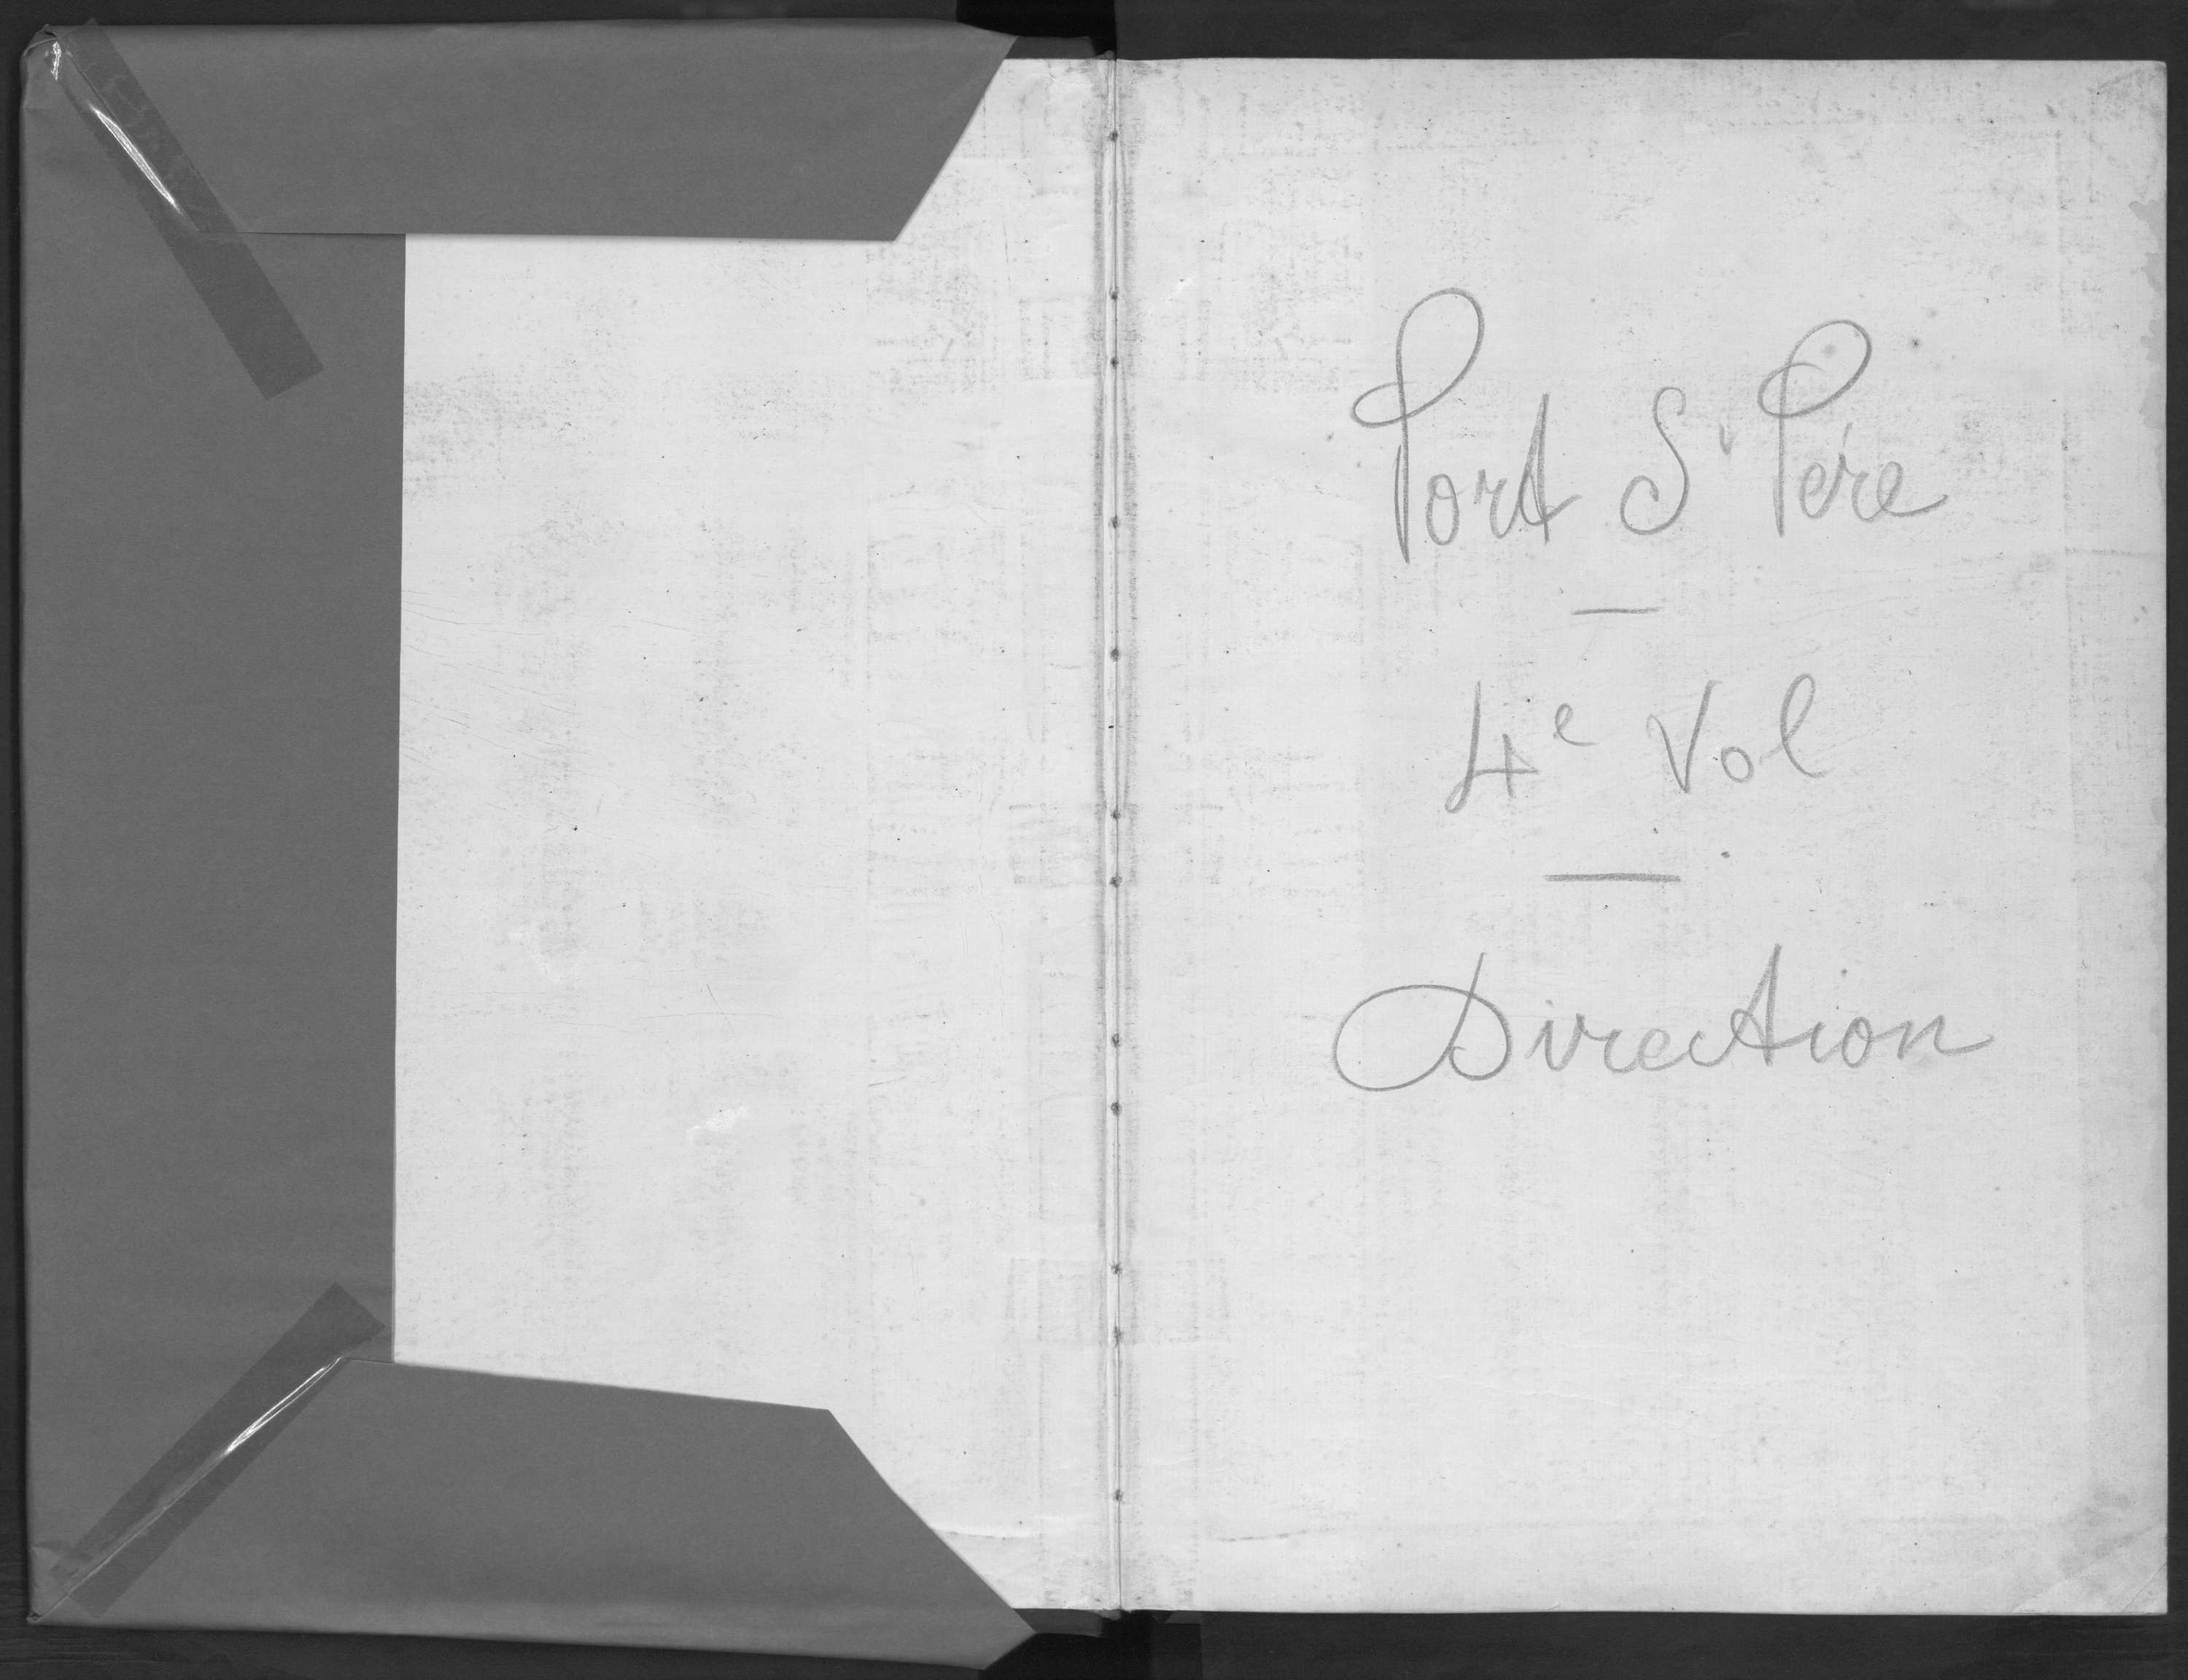 Port St Père
4e Vol
Direction